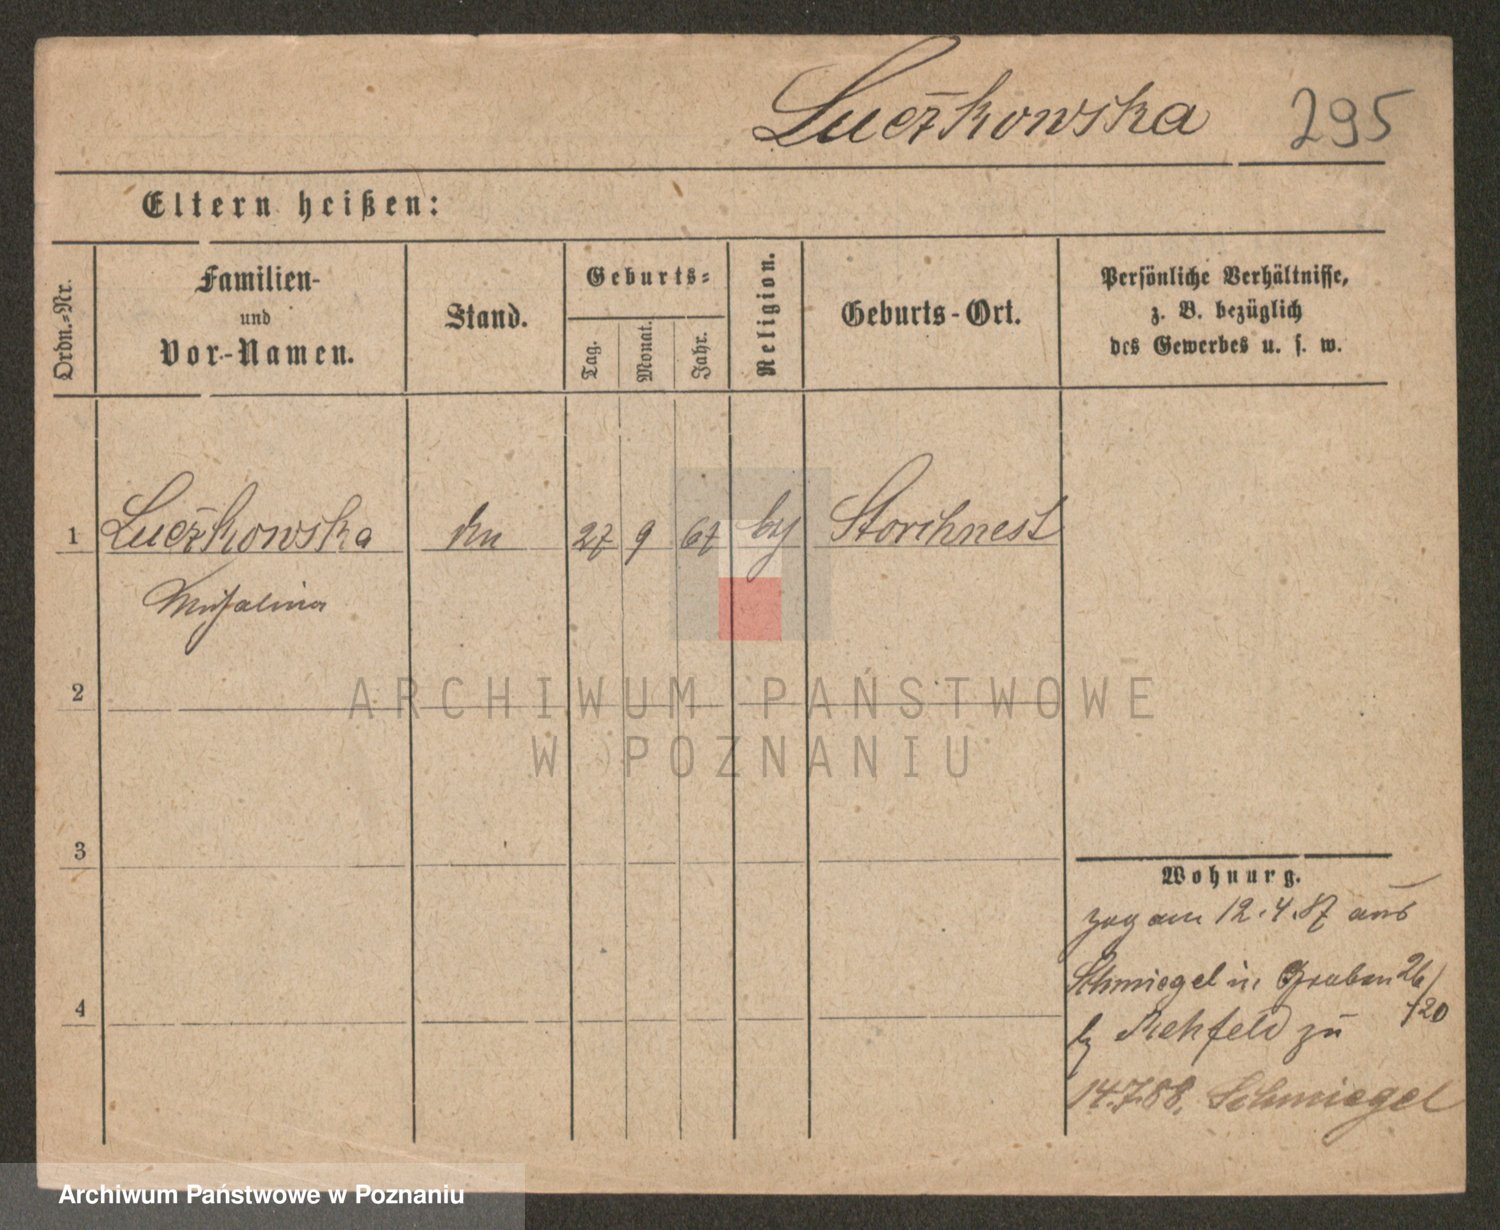 Luczkowska 295
Eltern heißen:
Ordn.-Nr.
Familien-
und
Vor-Namen.
Stand.
Geburts-
Tag.
Monat.
Jahr.
Religion.
Geburts-Ort.
Persönliche Verhältnisse,
z. B. bezüglich
des Gewerbes u. s. w.
1 Luczkowska 27 9 67 Storchnest
2
ARCHIWUM PAŃSTWOWE
W POZNANIU
3
Wohnung.
zog am 12.4.87 aus
Schmiegel in Graben 26/
b Rehfeld zu 120
4
14.7.88. Schmiegel
Archiwum Państwowe w Poznaniu